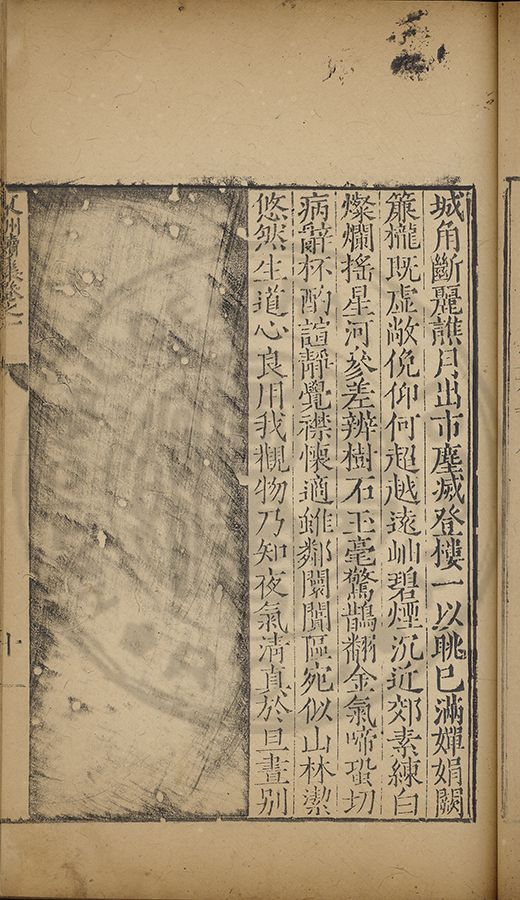 城角斷麗譙月出市塵滅登樓一以眺已滿嬋娟闕
簾櫳既虛敞俛仰何超越遠岫碧煙沉近郊素練白
燦爛搖星河參差辨樹石玉毫驚鵲翻金氣啼蛩切
病辭杯酌諠靜覺襟懷適雖鄰闤闠區宛似山林潔
悠然生道心良用我觀物乃知夜氣清真於旦晝别
十